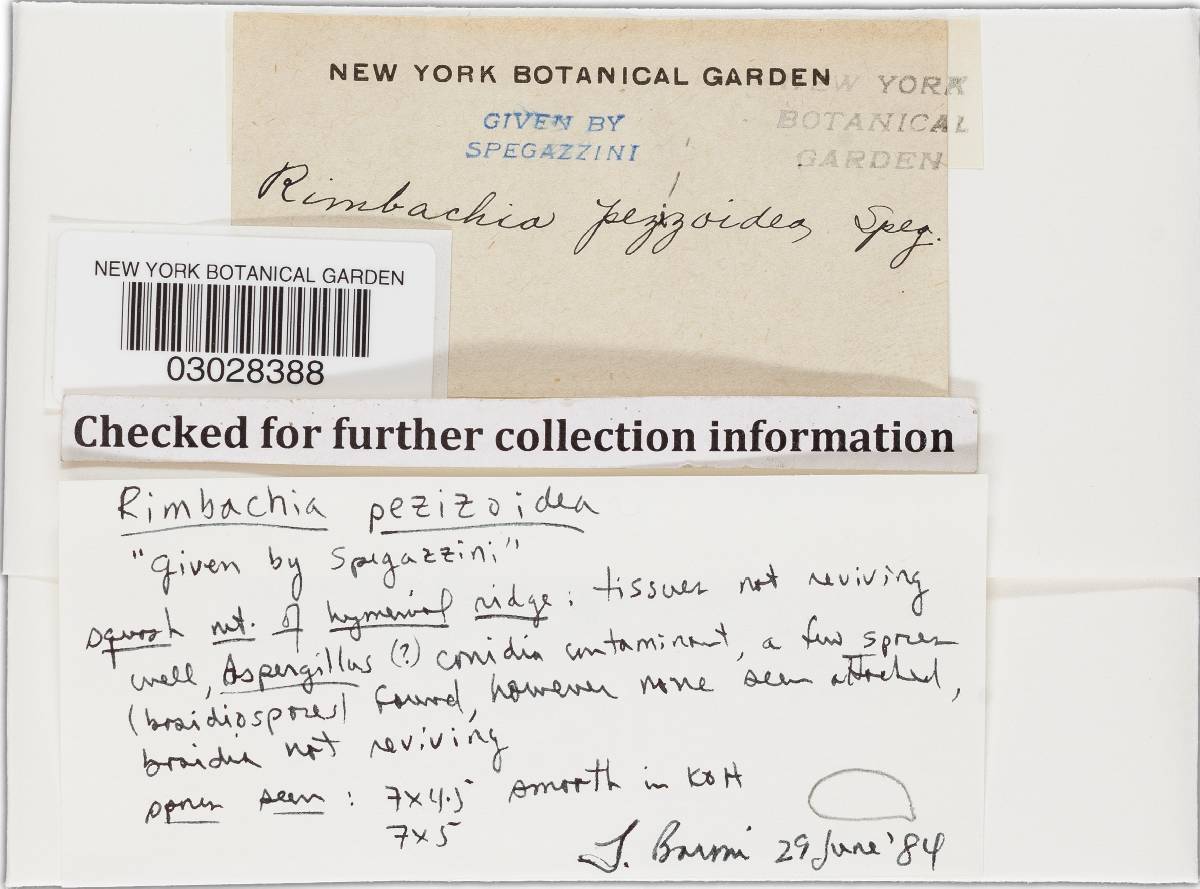 NEW YORK BOTANICAL GARDEN
NEW YORK
BOTANICAL
GARDEN
GIVEN BY
SPEGAZZINI
Rimbachia pezizoidea Speg.
NEW YORK BOTANICAL GARDEN
03028388
Checked for further collection information
Rimbachia pezizoidea
"given by Spegazzini"
squash mt. of hymenial ridge: tissues not reviving
well, Aspergillus (?) conidia contaminant, a few spores
(basidiospores) found, however none seen attached,
basidia not reviving
spores seen: 7x4.5 smooth in KOH
7x5
29 June '84